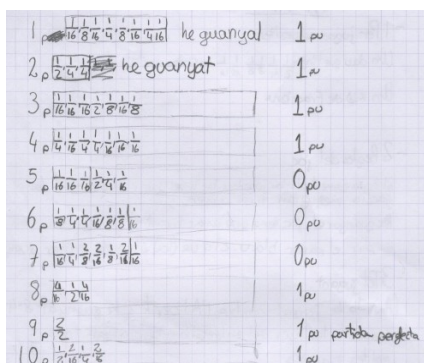 1p 1/16, 1/8, 1/16, 1/4, 1/8, 1/16, 1/4, 1/16 he guanyat 1 pu
2p 1/2, 1/4, 1/4 he guanyat 1 pu
3p 1/16 1/16 1/16 1/2 1/8 1/16 1/8 1 pu
4p 1/4, 1/16 1/4 1/4 1/16 1/16 1/16 1 pu
5p 1/16 1/16 1/16 1/2 1/4, 1/16 0 pu
6p 1/8, 1/4, 1/4, 1/16, 1/8, 1/8 1/16 0 pu
7p 1/16 1/4 2/8 2/16, 1/8, 2/16 1/16 0 pu
8p 1/2 4/16 1 pu
9p 2/2 1 pu partida perfecta
10p 1/2, 2/16, 1/4, 2/8 1 pu